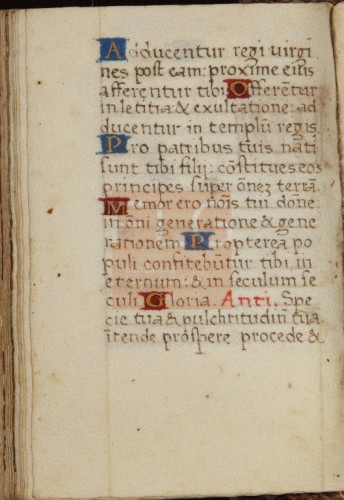 Adducentur regi virgi
nes post eam: proxime eius
afferentur tibi. Offerētur
in letitia & exultatione: ad
ducentur in templū regis.
Pro patribus tuis nati
sunt tibi filij: cōstitues eos
principes super ōnez terrā.
Memor ero nōis tui. done:
in oni generatione & gene
rationem. Propterea po
puli confitebūtur tibi in
eternum: & in seculum se
culi. Gloria. Anti. Spe
cie tua & pulchritudinē tua
ītende prospere procede &